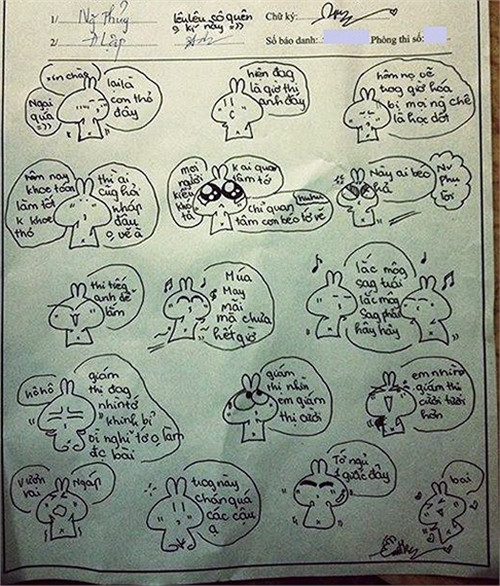 1/ Ng Thủy
2/
lêu lêu số quên
ký này :))
Chữ ký:
Số báo danh:
Phòng thi số:
xin chào
Ngại
quá
:))
lại là
con thỏ
đây
hiện đag
là giờ thi
anh đây
hôm nọ vẽ
trog giờ hóa
bị mọi ng chê
là học dốt
hôm nay
khoe toán
làm tốt
k khoe
thỏ
thì ai
cũg hỏi
khóp
đâu
ọ vẽ à
mọi
người
k ai quan
tâm tớ
huhu
chỉ quan
tâm con béo tớ vẽ
Này ai béo
hả
Nv
Phụ
lời
thi tiếng
anh dễ
lắm
Múa
May
Mãi
mà chưa
hết giờ
lắc môg
sag tuổi
lắc môg
sag phải
hây hây
hôhô
giám
thị đag
nhìn tớ
khinh bỉ
bị nghi tớ ọ làm
đc bài
giám
thị nhìn
em giám
thị cười
em nhìn
giám thị
cười tươi
hơn
Vươn
vai
Ngáp
trog này
chán quá
các cậu
ạ
Tớ ngủ
1 giấc đây
bai